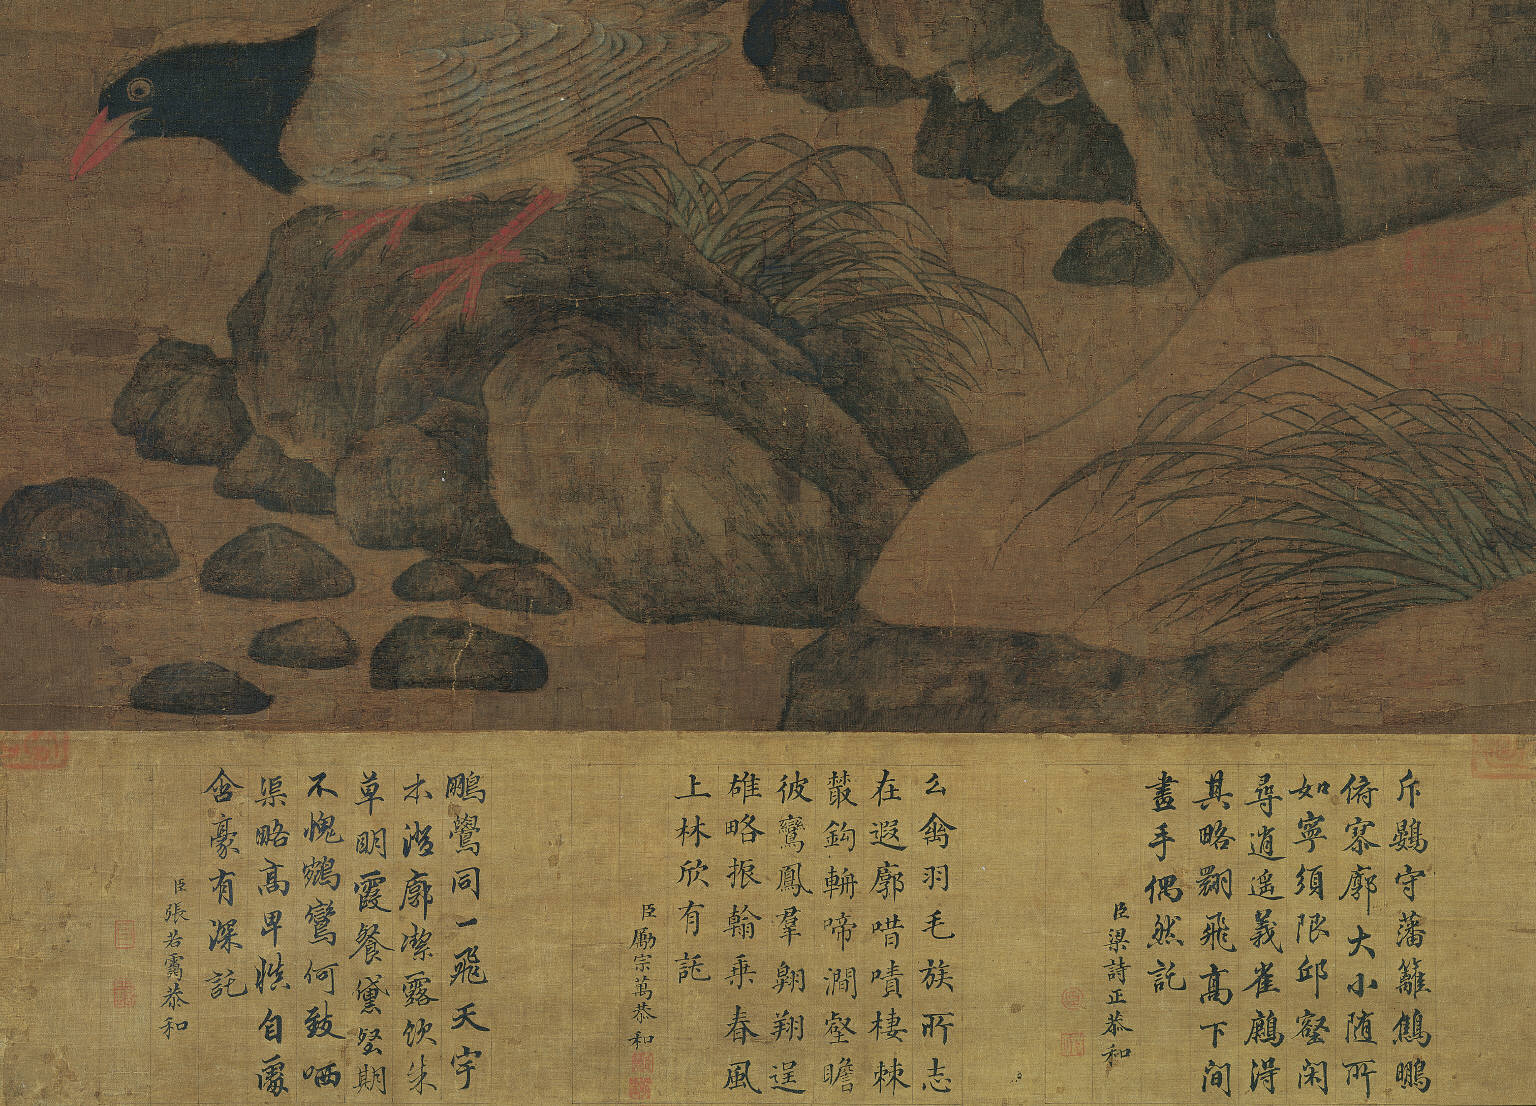 斥鷃守藩籬鷦鵬
俯寥廓大小随所
如寧須限邱壑閑
尋逍遥義雀鷓得
其略翾飛高下間
畫手偶然託
臣梁詩正恭和
么禽羽毛族所志
在遐廓唶嘖棲棘
叢鉤輈啼澗壑瞻
彼鸞鳳羣翱翔逞
雄略振翰乘春風
上林欣有託
臣勵宗萬恭和
鵬鷽同一飛天宇
本澄廓潔露飲朱
草明霞餐黛壑期
不愧鵷鸞何致哂
渠略高卑慎自處
含豪有深託
臣張若靄恭和